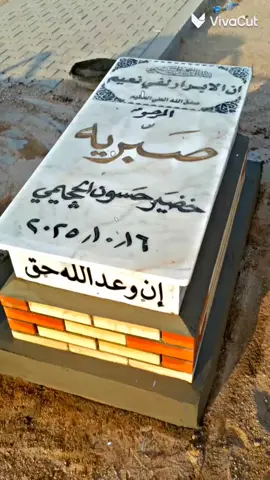 VivaCut
إن الابرار لفي نعيم
صدق الله العلي العظيم
صبريه
خضير حسون الجحيمي
٢٠٢٥/١٠/١٦
إن وعد الله حق